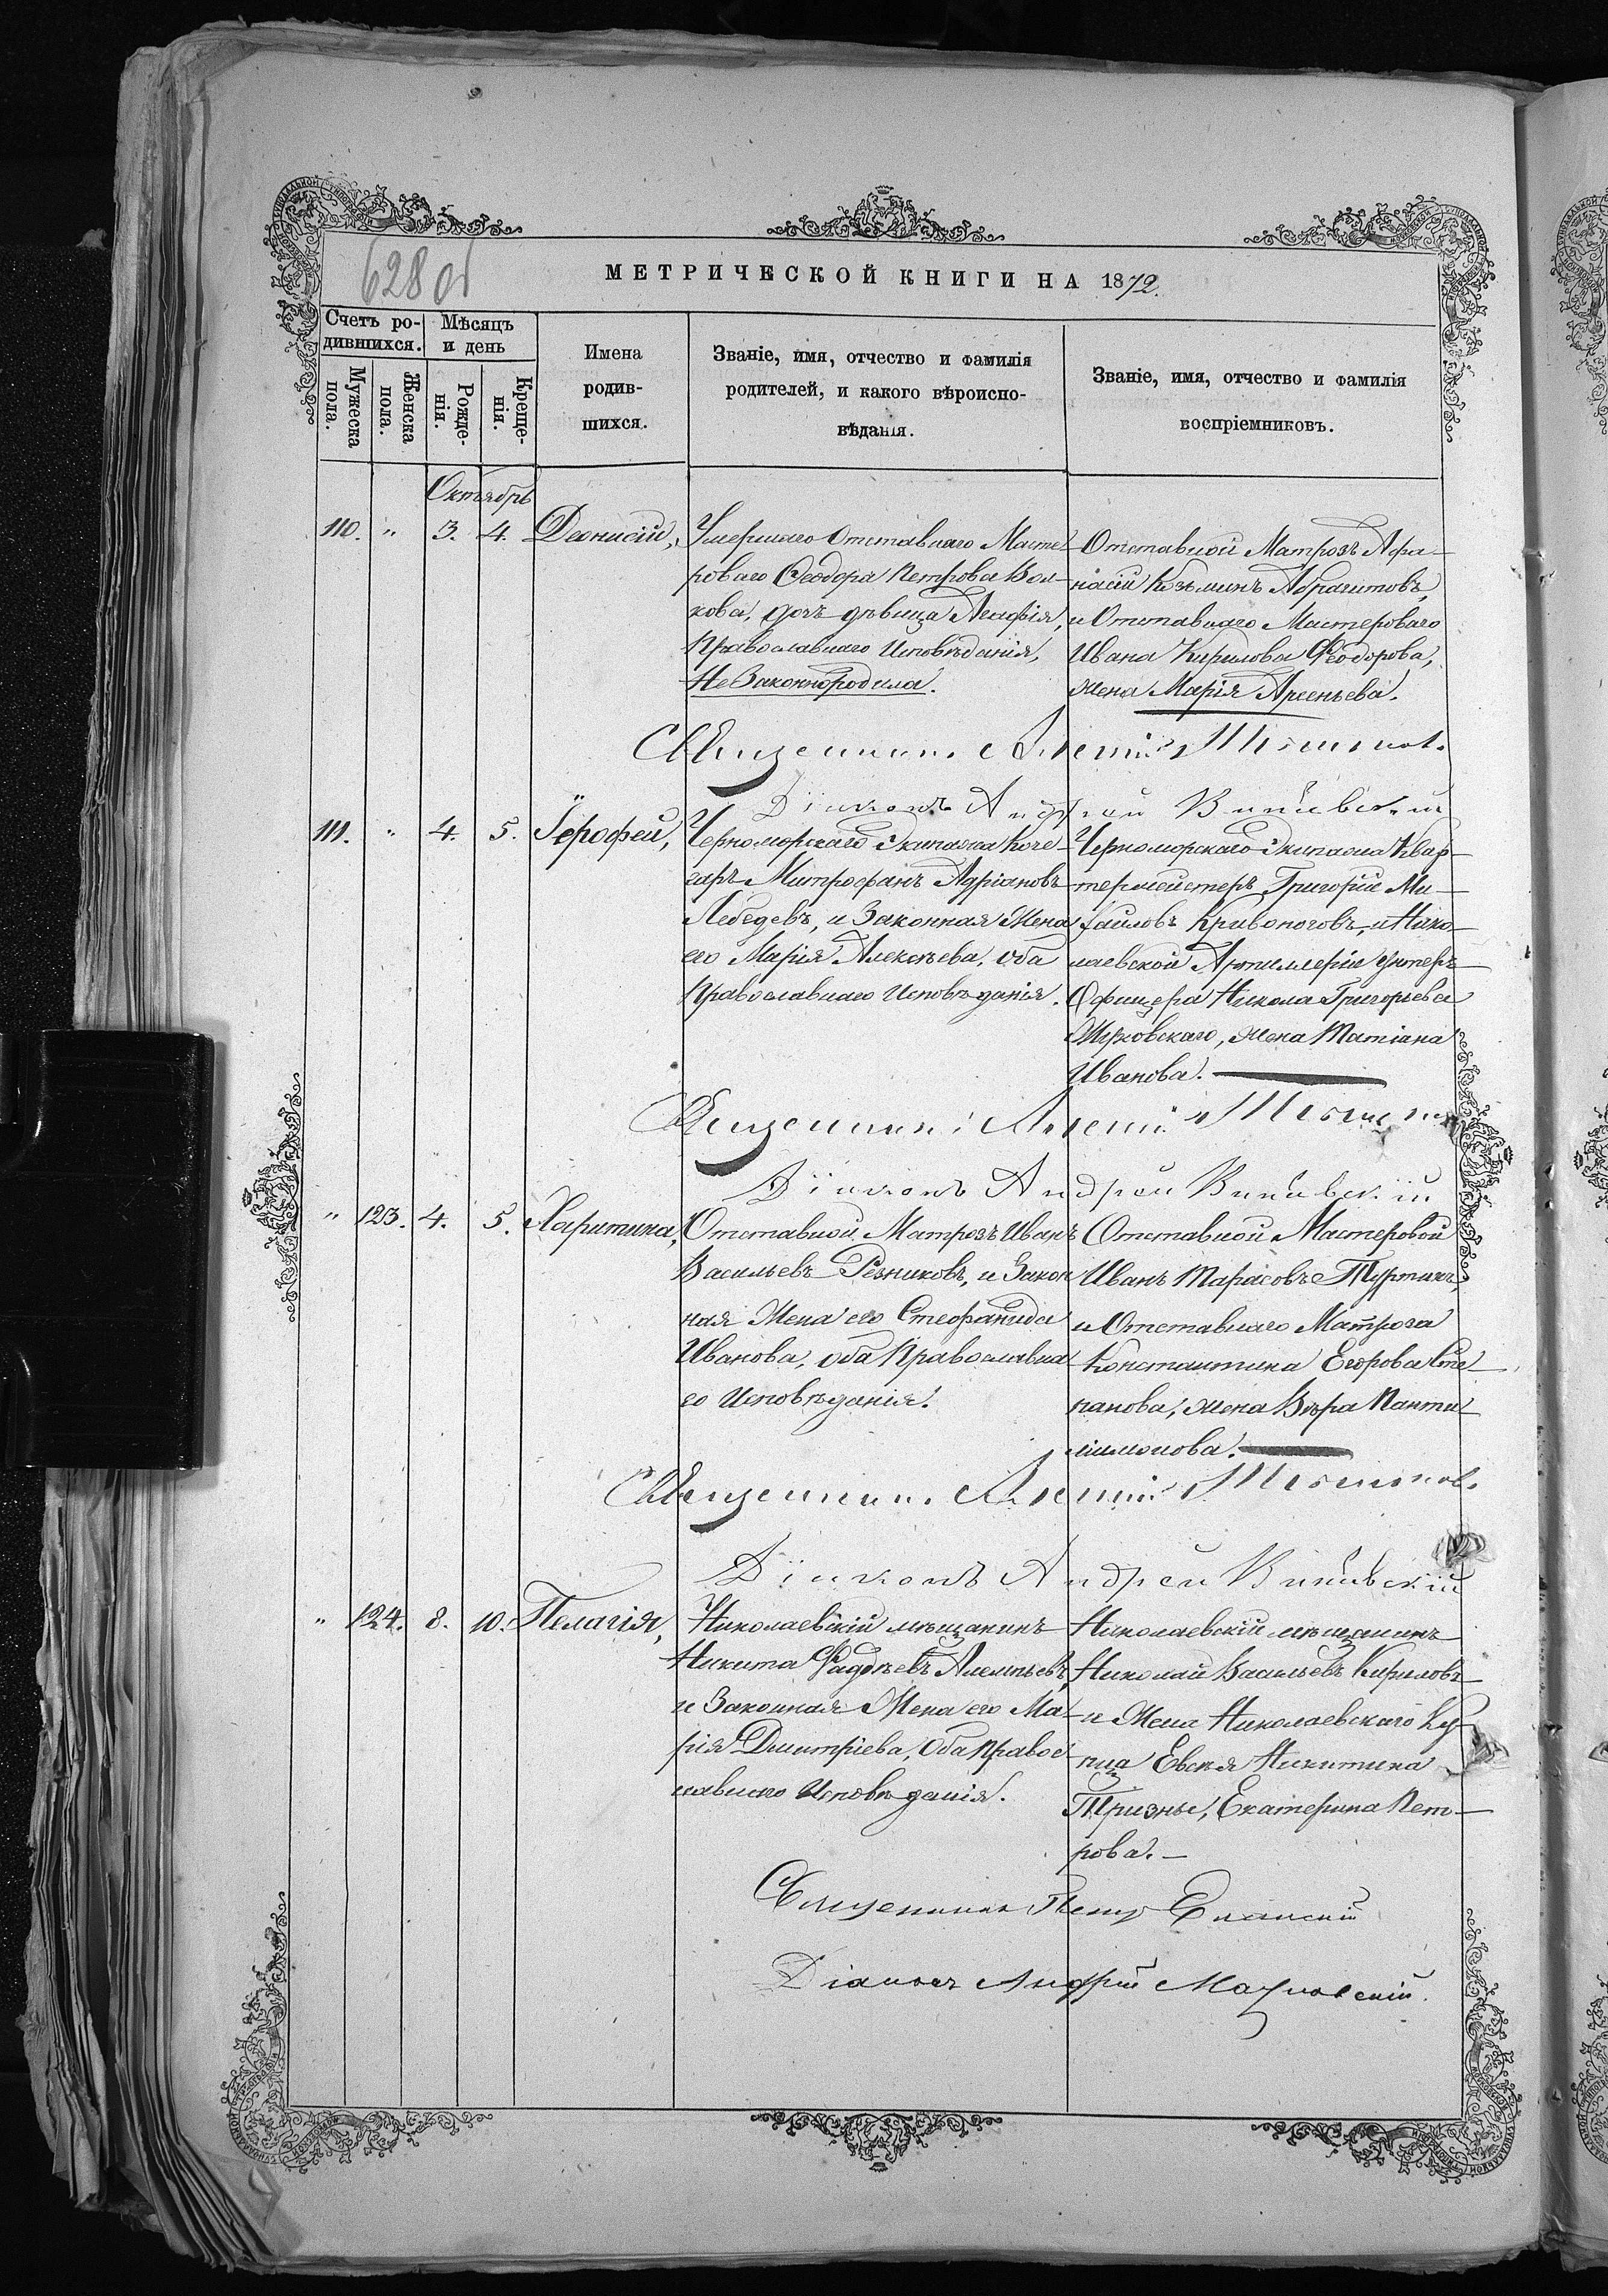 628 об
МЕТРИЧЕСКОЙ КНИГИ НА 1872.
Счетъ ро-
дившихся.
Мѣсяцъ
и день
Мужеска
пола.
Женска
пола.
Рожде-
нія.
Креще-
нія.
Имена
родив-
шихся.
Званіе, имя, отчество и фамилія
родителей, и какого вѣроиспо-
вѣданія.
Званіе, имя, отчество и фамилія
воспріемниковъ.
Октябрь
110. " 3. 4. Деонисій,
Умершаго Отставнаго Масте-
роваго Ѳеодора Петрова Вол-
кова, дочь дѣвица Агафія,
Православнаго Исповѣданія,
Не Законнородила.
Отставной Матрозъ Афа-
насій Козьминъ Абрагимовъ,
и Отставнаго Мастероваго
Ивана Кирилова Феодорова,
жена Марія Арсеньева.
Священникъ Алексій
Діаконъ Андрей
111. " 4. 5. Іерофей,
Черноморскаго Экипажа Коче-
гаръ Митрофанъ Адріановъ
Лебедевъ, и Законная Жена
его Марія Алексѣева, оба
Православнаго Исповѣданія.
Черноморскаго Экипажа Квар-
термейстеръ Григорій Ми-
хайловъ Кривоноговъ, и Нико-
лаевской Артиллеріи Унтеръ
Офицера Никола Григорьева
Жерковскаго, жена Татіана
Иванова.
Священникъ Алексій
Діаконъ Андрей
" 123. 4. 5. Харитина,
Отставной Матрозъ Иванъ
Васильевъ Рѣзниковъ, и Закон
ная Жена его Стефанида
Иванова, оба Православна
го Исповѣданія.
Отставной Мастеровой
Иванъ Тарасовъ Туртинъ,
и Отставнаго Матроза
Константина Егорова Сте-
панова, жена Вѣра Панти-
лимонова.
Священникъ Алексій
Діаконъ Андрей
" 124. 8. 10. Пелагія,
Николаевскій мѣщанинъ
Никита Фадѣевъ
и Законная Жена его Ма-
рія Дмитріева, Оба Правос-
лавнаго Исповѣданія.
Николаевскій мѣщанинъ
Николай Васильевъ Кириловъ
и Жена Николаевскаго Куп-
ца Евсея Никитина
Тризны, Екатерина Пет-
рова.
Священникъ Петръ Еланскій
Діаконъ Андрей